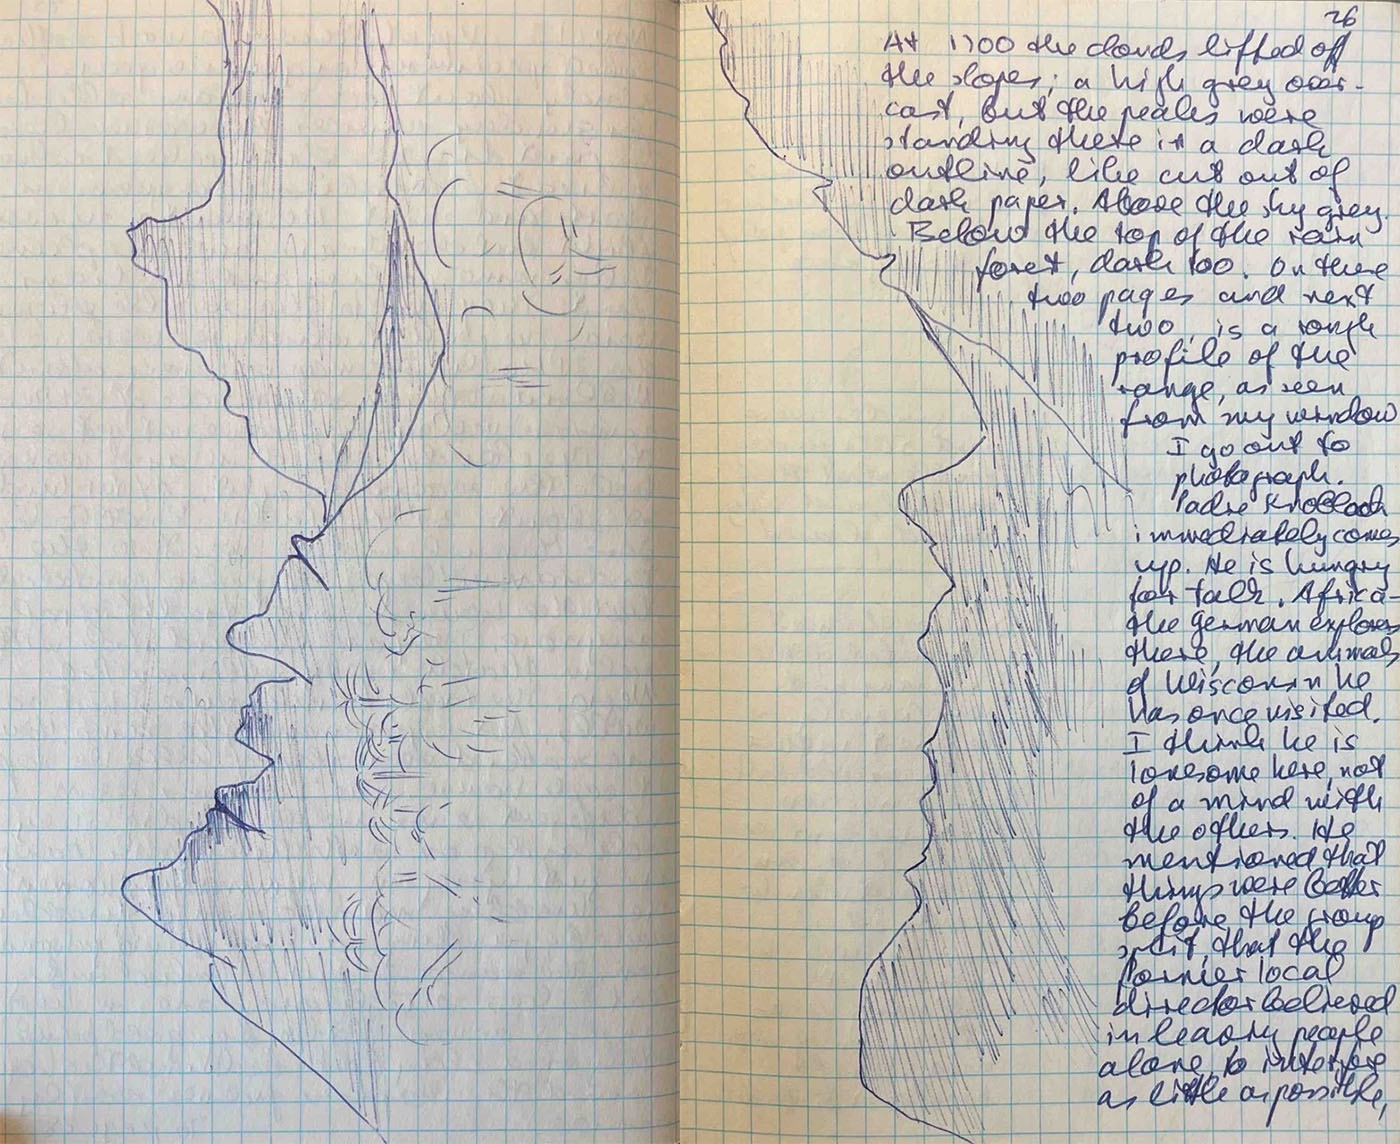 26
At 1700 the clouds lifted off
the slopes; a high grey over-
cast, but the peaks were
standing there in a dark
outline, like cut out of
dark paper. Above the sky grey.
Below the top of the rain
forest, dark too. On these
two pages and next
two, is a rough
profile of the
range, as seen
from my window
I go out to
photograph.
Padre Knobloch
immediately comes
up. He is hungry
for talk. Africa-
the German explorers
there, the animals
of Wisconsin he
has once visited.
I think he is
lonesome here, not
of a mind with
the others. He
mentioned that
things were better
before the group
split, that the
former local
director believed
in leaving people
alone, to interfere
as little as possible,